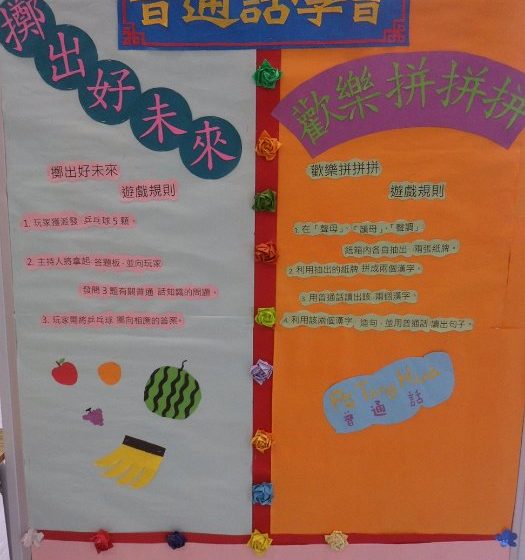 普通話學習
擲出好未來
擲出好未來
遊戲規則
1. 玩家獲派發 乒乓球 5 顆。
2. 主持人將拿起 答題板, 並向玩家
發問 3 題有關普通 話知識的問題。
3. 玩家需將乒乓球 擲向相應的答案。
歡樂拼拼拼
歡樂拼拼拼
遊戲規則
1. 在「聲母」、「韻母」、「聲調」
紙箱內各自抽出 兩張紙牌。
2 利用抽出的紙牌 拼成兩個漢字。
3. 用普通話讀出該 兩個漢字。
4. 利用該兩個漢字 造句, 並用普通話 讀出句子。
Pu Tong Hua
普通話